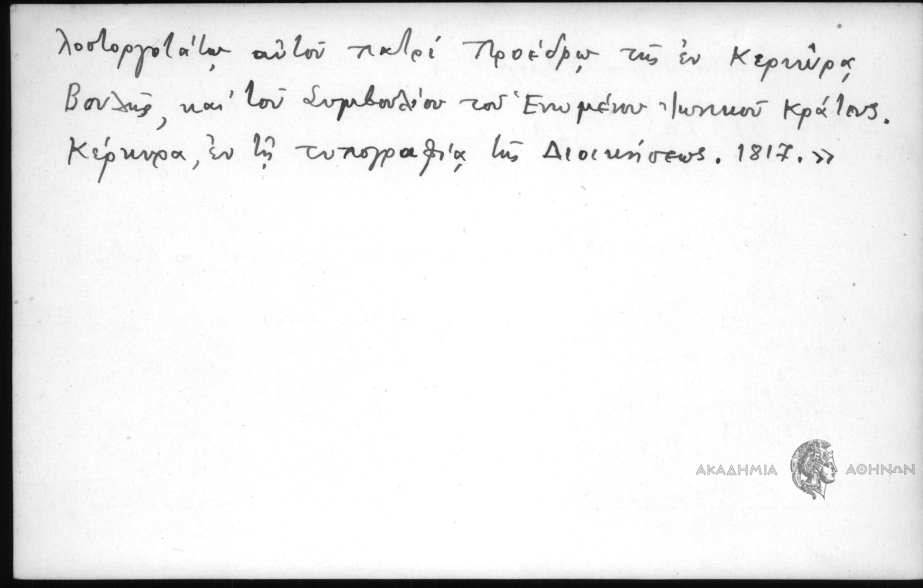 λοστοργοτάτῳ αὐτοῦ πατρί Προέδρῳ τῆς ἐν Κερκύρᾳ
Βουλῆς, καί τοῦ Συμβουλίου τοῦ Ἑνωμένου Ἰωνικοῦ Κράτους.
Κέρκυρα, ἐν τῇ τυπογραφίᾳ τῆς Διοικήσεως. 1817.»
ΑΚΑΔΗΜΙΑ ΑΘΗΝΩΝ